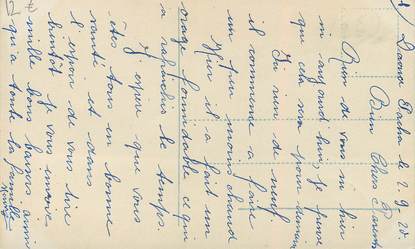 Dama Pacha le 2-9-28
Bien Chers Parents
Rien de vous ni hier
ni aujourd'hui je pense
que cela sera pour demain
Ici rien de neuf
il commence à faire
un peu moins chaud
Hier il a fait un
orage formidable ce qui
a rafraichis le temps.
J'espère que vous
êtes tous en bonne
santé et dans
l'espoir de vous lire
bientôt je vous envoie
mille bons baisers ainsi
qu'à toute la famille